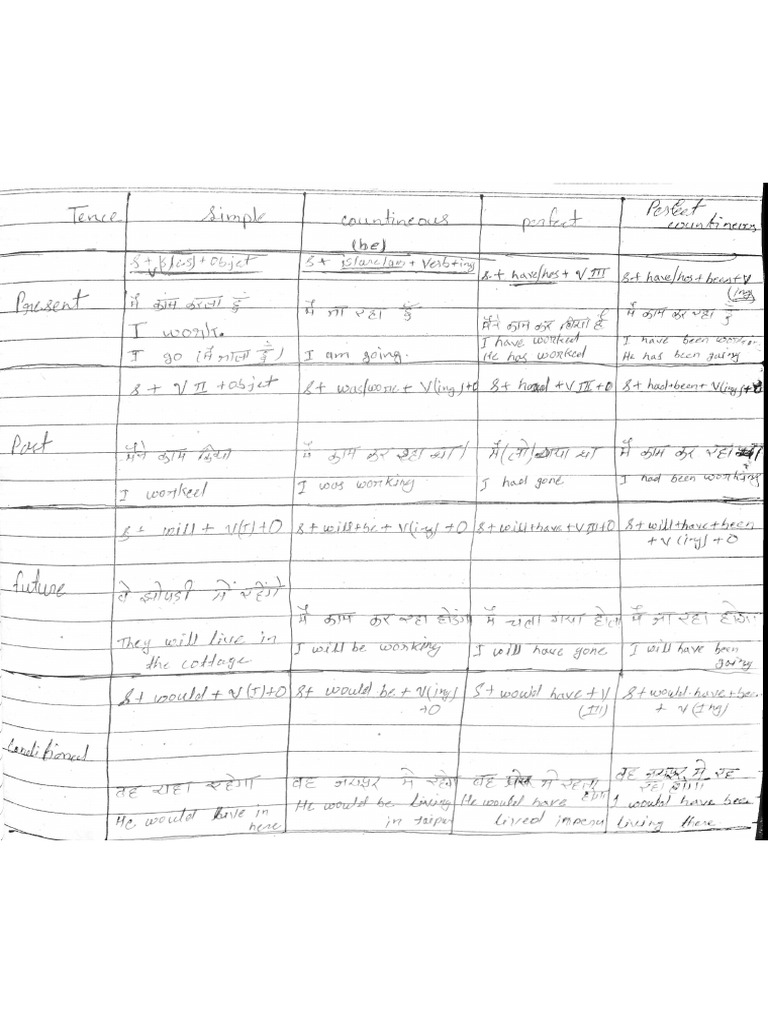 Tence simple countineous perfect Perfect countineous
(be)
Present
S+V(s/es)+objet
मैं काम करता हुं
I work.
I go (मैं जाता हूँ)
S+ is/are/am + Verb+ing
मैं जा रहा हूँ
I am going.
S+ have/hes + V III
मैंने काम कर लिया है
I have worked
He has worked
S+have/hes+been+V
(ing)
मैं काम कर रहा हूँ
I have been workin.
He has been going
Past
S+ V II +objet
मैंने काम किया
I worked
S+ was/were+ V(ing)+O
मैं काम कर रहा था।
I was working
S+ had +VIII+O
मैं(तो) गया था
I had gone
S+had+been+ V(ing)+O
मैं काम कर रहा था।
I had been working
future
S= will + V(I)+O
वे झोपडी में रहेंगे
They will live in
the cottage
S+will+be + V(ing) +O
मैं काम कर रहा होउंगा
I will be working
S+will+have+VIII+O
मैं चला गया होता
I will have gone
S+will+have+been
+V(ing)+O
मैं जा रहा होऊंगा
I will have been
going
Conditional
S+ would + V(I)+O
वह यहा रहेगा
He would live in
here
S+ would be + V(ing)
+O
वह जयपुर मे रहेगा
He would be living
in Jaipur
S+ would have + V
(III)
वह मे रहता
होगा
He would have
lived
S+would have+been
+ V(Ing)
वह जयपुर मे रह
रहा होगा
I would have been
living there.